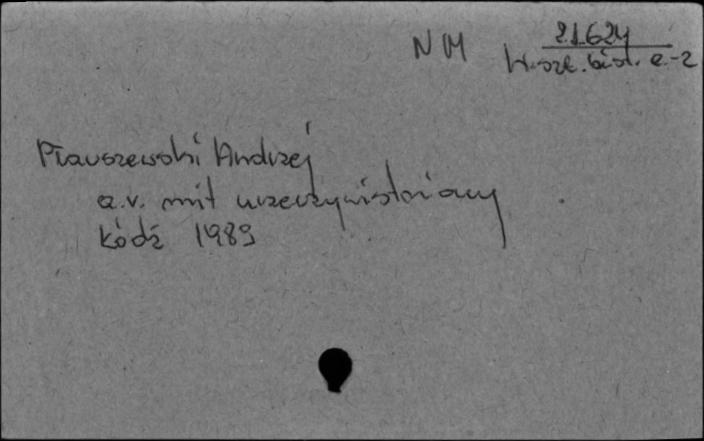 NM
21.624
W. szt. bibl. a.-2
Pławszewski Andrzej
a.v. mit urzeczywistniany
Łódź 1989